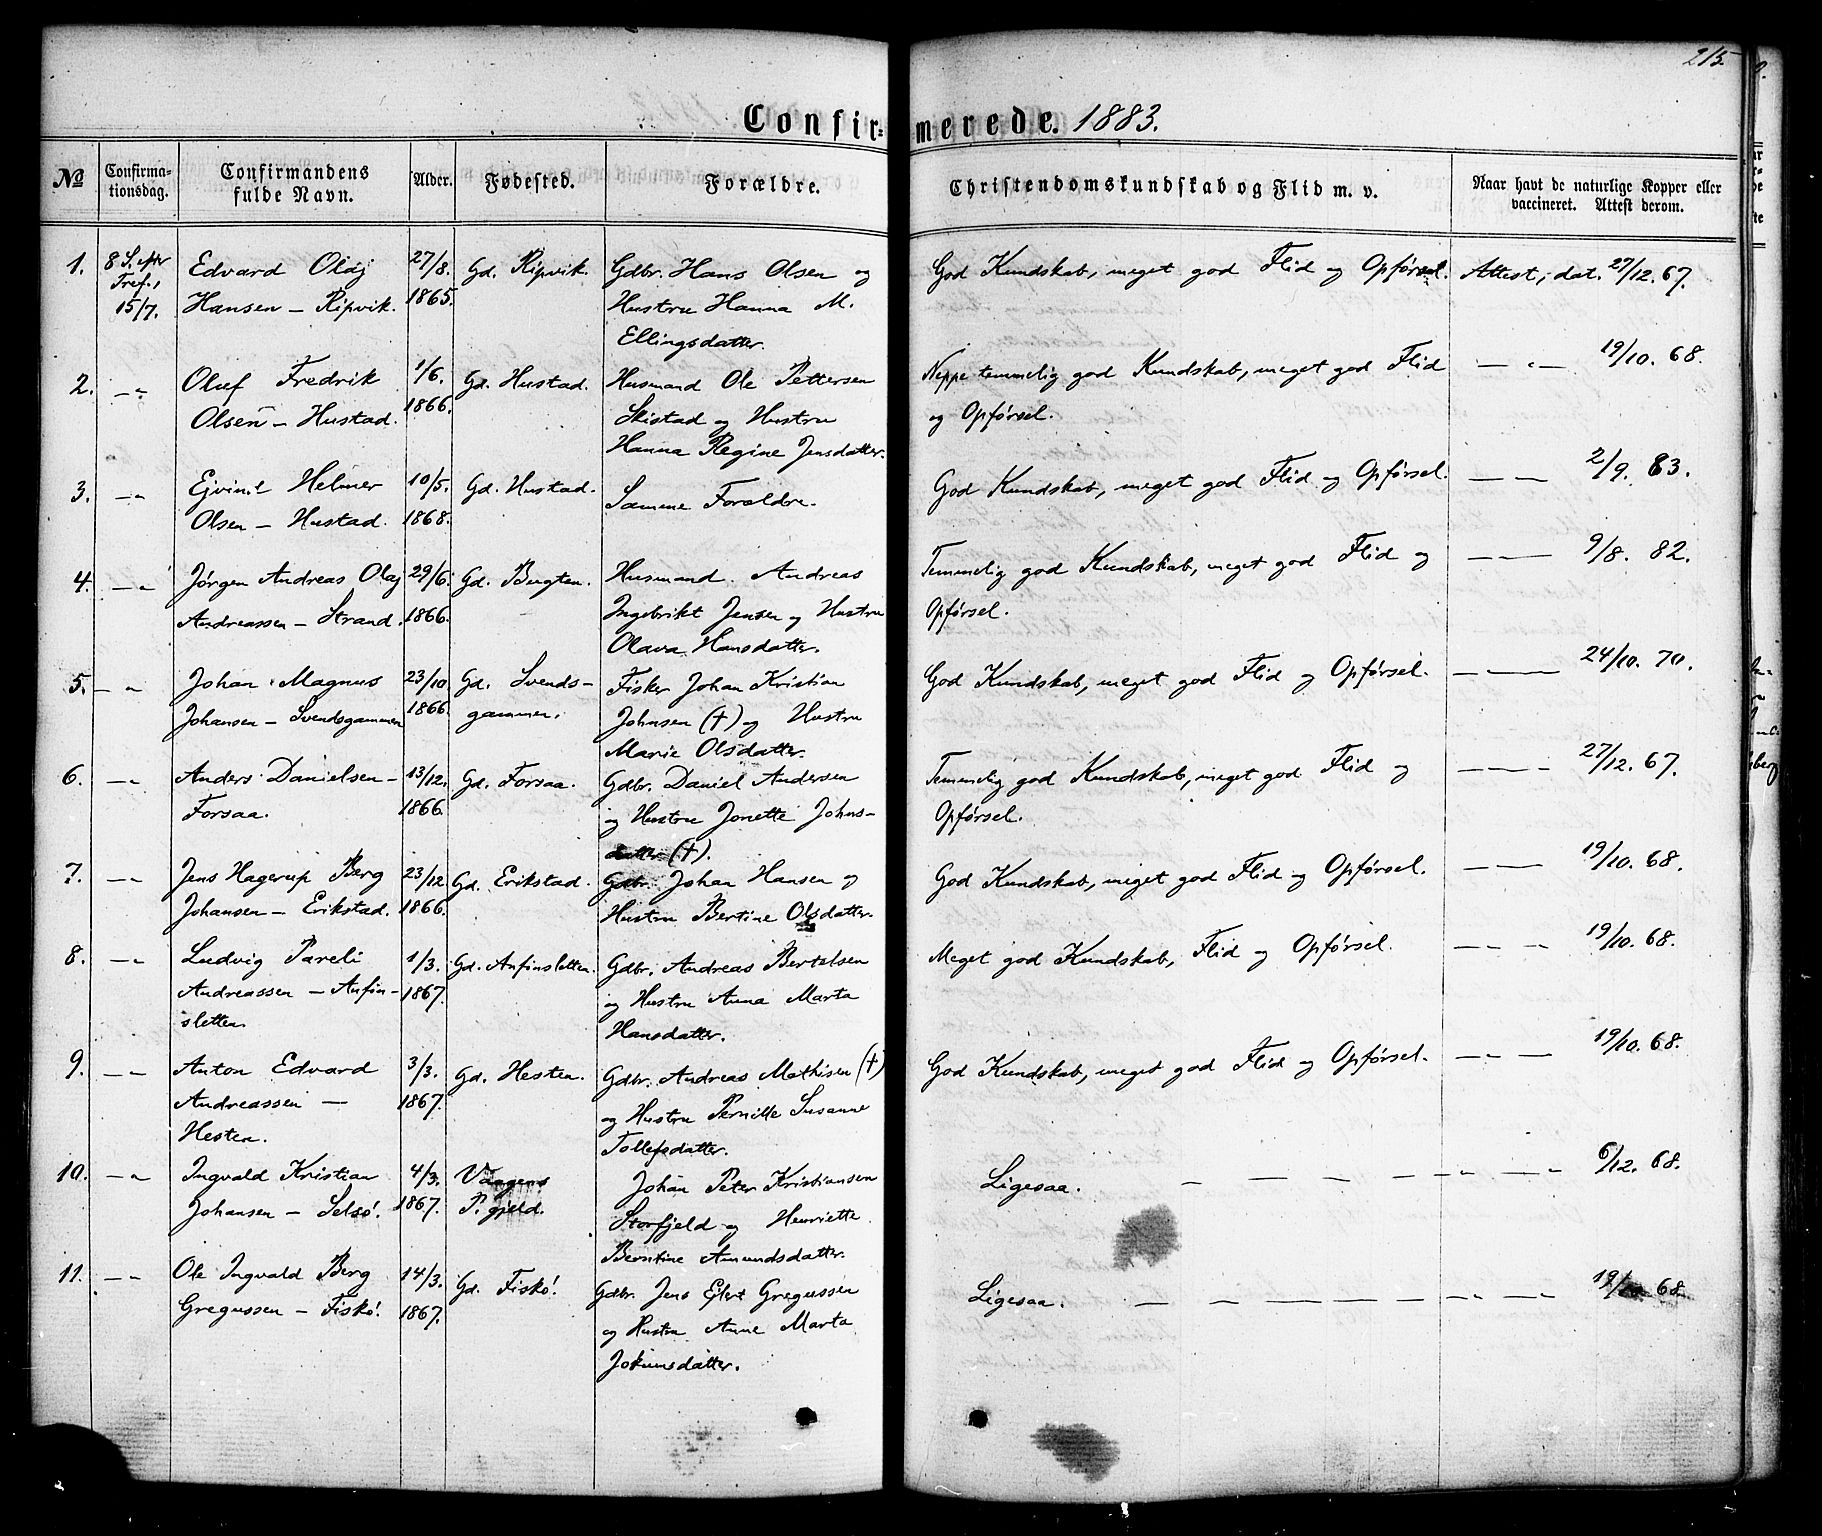 215.
Confir-merede. 1883.
No
Confirma-
tionsdag.
Confirmandens
fulde Navn.
Alder.
Fødested.
Forældre.
Christendomskundskab og Flid m. v.
Naar havt de naturlige Kopper eller
vaccineret. Attest derom.
1. 8 S. efter Edvard Olaj 27/8. Gd. Ripvik. Gdbr. Hans Olsen og God Kundskab, meget god Flid og Opførsel. Attest, dat. 27/12. 67.
Tref., 15/7. Hansen – Ripvik. 1865. Hustru Hanna M.
Ellingsdatter.
2. –„– Oluf Fredrik 1/6. Gd. Hustad. Husmand Ole Pettersen Neppe temmelig god Kundskab, meget god Flid — „ — 19/10. 68.
Olsen – Hustad. 1866. Skistad og Hustru og Opførsel.
Hanna Regine Jensdatter.
3. –„– Ejvind Helmer 10/5. Gd. Hustad. Samme Forældre. God Kundskab, meget god Flid og Opførsel. — — 2/9. 83.
Olsen – Hustad. 1868.
4. –„– Jørgen Andreas Olaj 29/6. Gd. Bugten. Husmand Andreas Temmelig god Kundskab, meget god Flid og — — 9/8. 82.
Andreassen – Strand. 1866. Ingebrikt Jensen og Hustru Opførsel.
Olava Hansdatter.
5. –„ Johan Magnus 23/10 Gd. Svends- Fisker Johan Kristian God Kundskab, meget god Flid og Opførsel. — — 24/10. 70.
Johansen – Svendsgammen 1866. gammen. Johnsen (†) og Hustru
Marie Olsdatter.
6. –„– Anders Danielsen – 13/12. Gd. Forsaa. Gdbr. Daniel Andersen Temmelig god Kundskab, meget god Flid og — — 27/12. 67.
Forsaa. 1866. og Hustru Jonette Johns- Opførsel.
datter (†).
7. –„– Jens Hagerup Berg 23/12 Gd. Erikstad. Gdbr. Johan Hansen og God Kundskab, meget god Flid og Opførsel. — — 19/10. 68.
Johansen – Erikstad. 1866. Hustru Bertine Olsdatter.
8. –„ Ludvig Pareli 1/3. Gd. Anfinsletten. Gdbr. Andreas Bertelsen Meget god Kundskab, Flid og Opførsel. — „ — 19/10. 68.
Andreassen – Anfin- 1867. og Hustru Anna Marta
sletten. Hansdatter.
9. –„ Anton Edvard 3/3. Gd. Hesten. Gdbr. Andreas Mathisen (†) God Kundskab, meget god Flid og Opførsel. — „ — 19/10. 68.
Andreassen – 1867. og Hustru Pernille Susanne
Hesten. Tollefsdatter.
10. –„ Ingvald Kristian 4/3. Vaagens Johan Peter Kristiansen Ligesaa. — — — — — „ — „ 6/12. 68.
Johansen – Selsø. 1867. P. gjeld. Storfjeld og Henriette
Berntine Amundsdatter.
11. –„ Ole Ingvald Berg 14/3. Gd. Fiskø. Gdbr. Jens Ejlert Gregussen Ligesaa. — — — — — „ — „ 19/10 68.
Gregussen – Fiskø. 1867. og Hustru Anne Marta
Jokumsdatter.